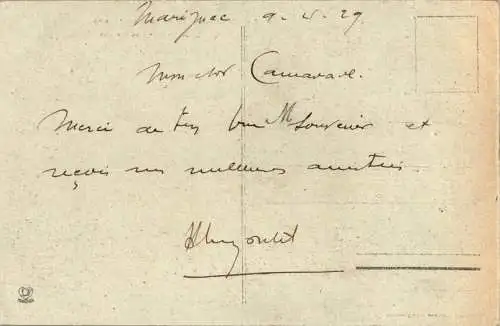 Marignac 9-5-29
Mon cher Camarade.
Merci de ton bon souvenir et
reçois mes meilleures amitiés